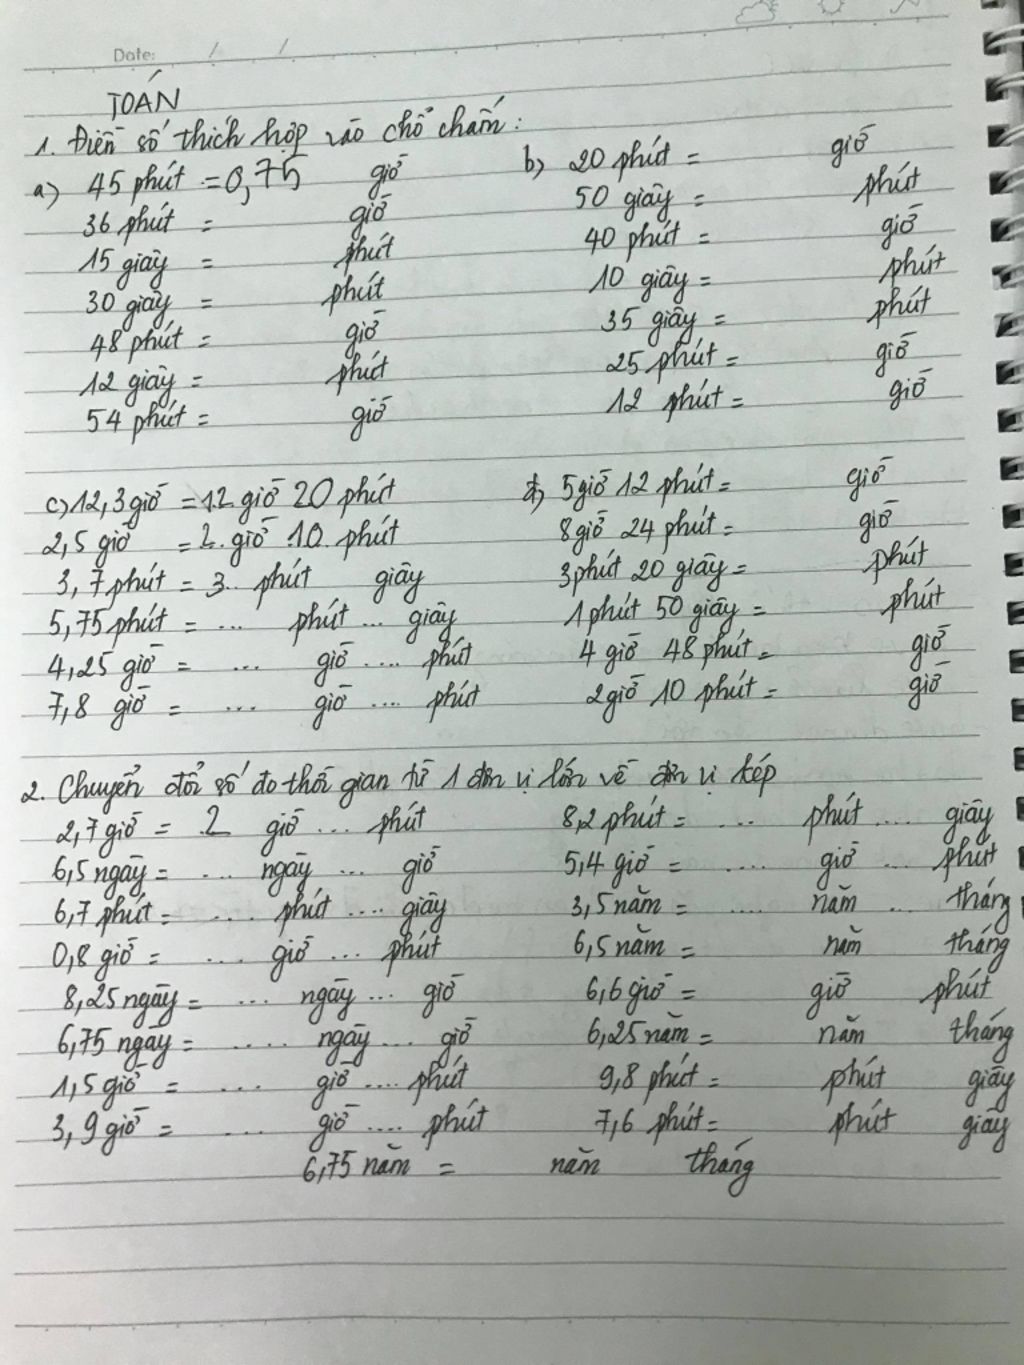 Date: / /
TOÁN
1. Điền số thích hợp vào chỗ chấm:
a) 45 phút = 0,75 giờ b) 20 phút = giờ
36 phút = giờ 50 giây = phút
15 giây = phút 40 phút = giờ
30 giây = phút 10 giây = phút
48 phút = giờ 35 giây = phút
12 giây = phút 25 phút = giờ
54 phút = giờ 12 phút = giờ
c) 12,3 giờ = 12 giờ 20 phút d) 5 giờ 12 phút = giờ
2,5 giờ = 2. giờ .10. phút 8 giờ 24 phút = giờ
3,7 phút = 3.. phút giây 3 phút 20 giây = phút
5,75 phút = ... phút ... giây 1 phút 50 giây = phút
4,25 giờ = ... giờ .... phút 4 giờ 48 phút = giờ
7,8 giờ = ... giờ .... phút 2 giờ 10 phút = giờ
2. Chuyển đổi số đo thời gian từ 1 đơn vị lớn về đơn vị kép
2,7 giờ = .2 giờ ... phút 8,2 phút = ... phút .... giây
6,5 ngày = ... ngày ... giờ 5,4 giờ = .... giờ ... phút
6,7 phút = .... phút .... giây 3,5 năm = .... năm ... tháng
0,8 giờ = ... giờ ... phút 6,5 năm = năm tháng
8,25 ngày = ... ngày ... giờ 6,6 giờ = giờ phút
6,75 ngày = ..... ngày ... giờ 6,25 năm = năm tháng
1,5 giờ = ... giờ .... phút 9,8 phút = phút giây
3,9 giờ = ... giờ .... phút 7,6 phút = phút giây
6,75 năm = năm tháng